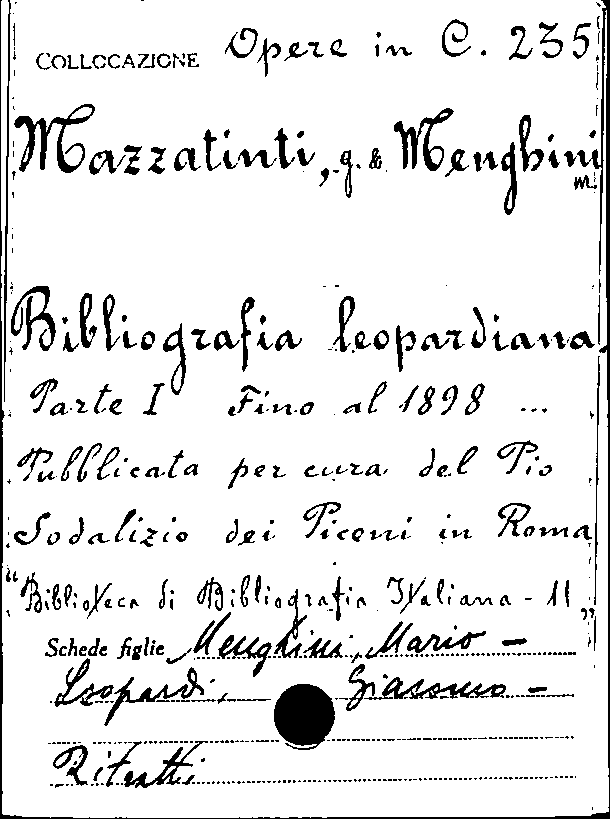 COLLOCAZIONE Opere in C. 235
Mazzatinti, g. & Menghini
m.
Bibliografia leopardiana.
Parte I Fino al 1898 ...
Pubblicata per cura del Pio
Sodalizio dei Piceni in Roma
"Biblioteca di Bibliografia Italiana - 11"
Schede figlie Menghini, Mario -
Leopardi, Giacomo -
Ritratti